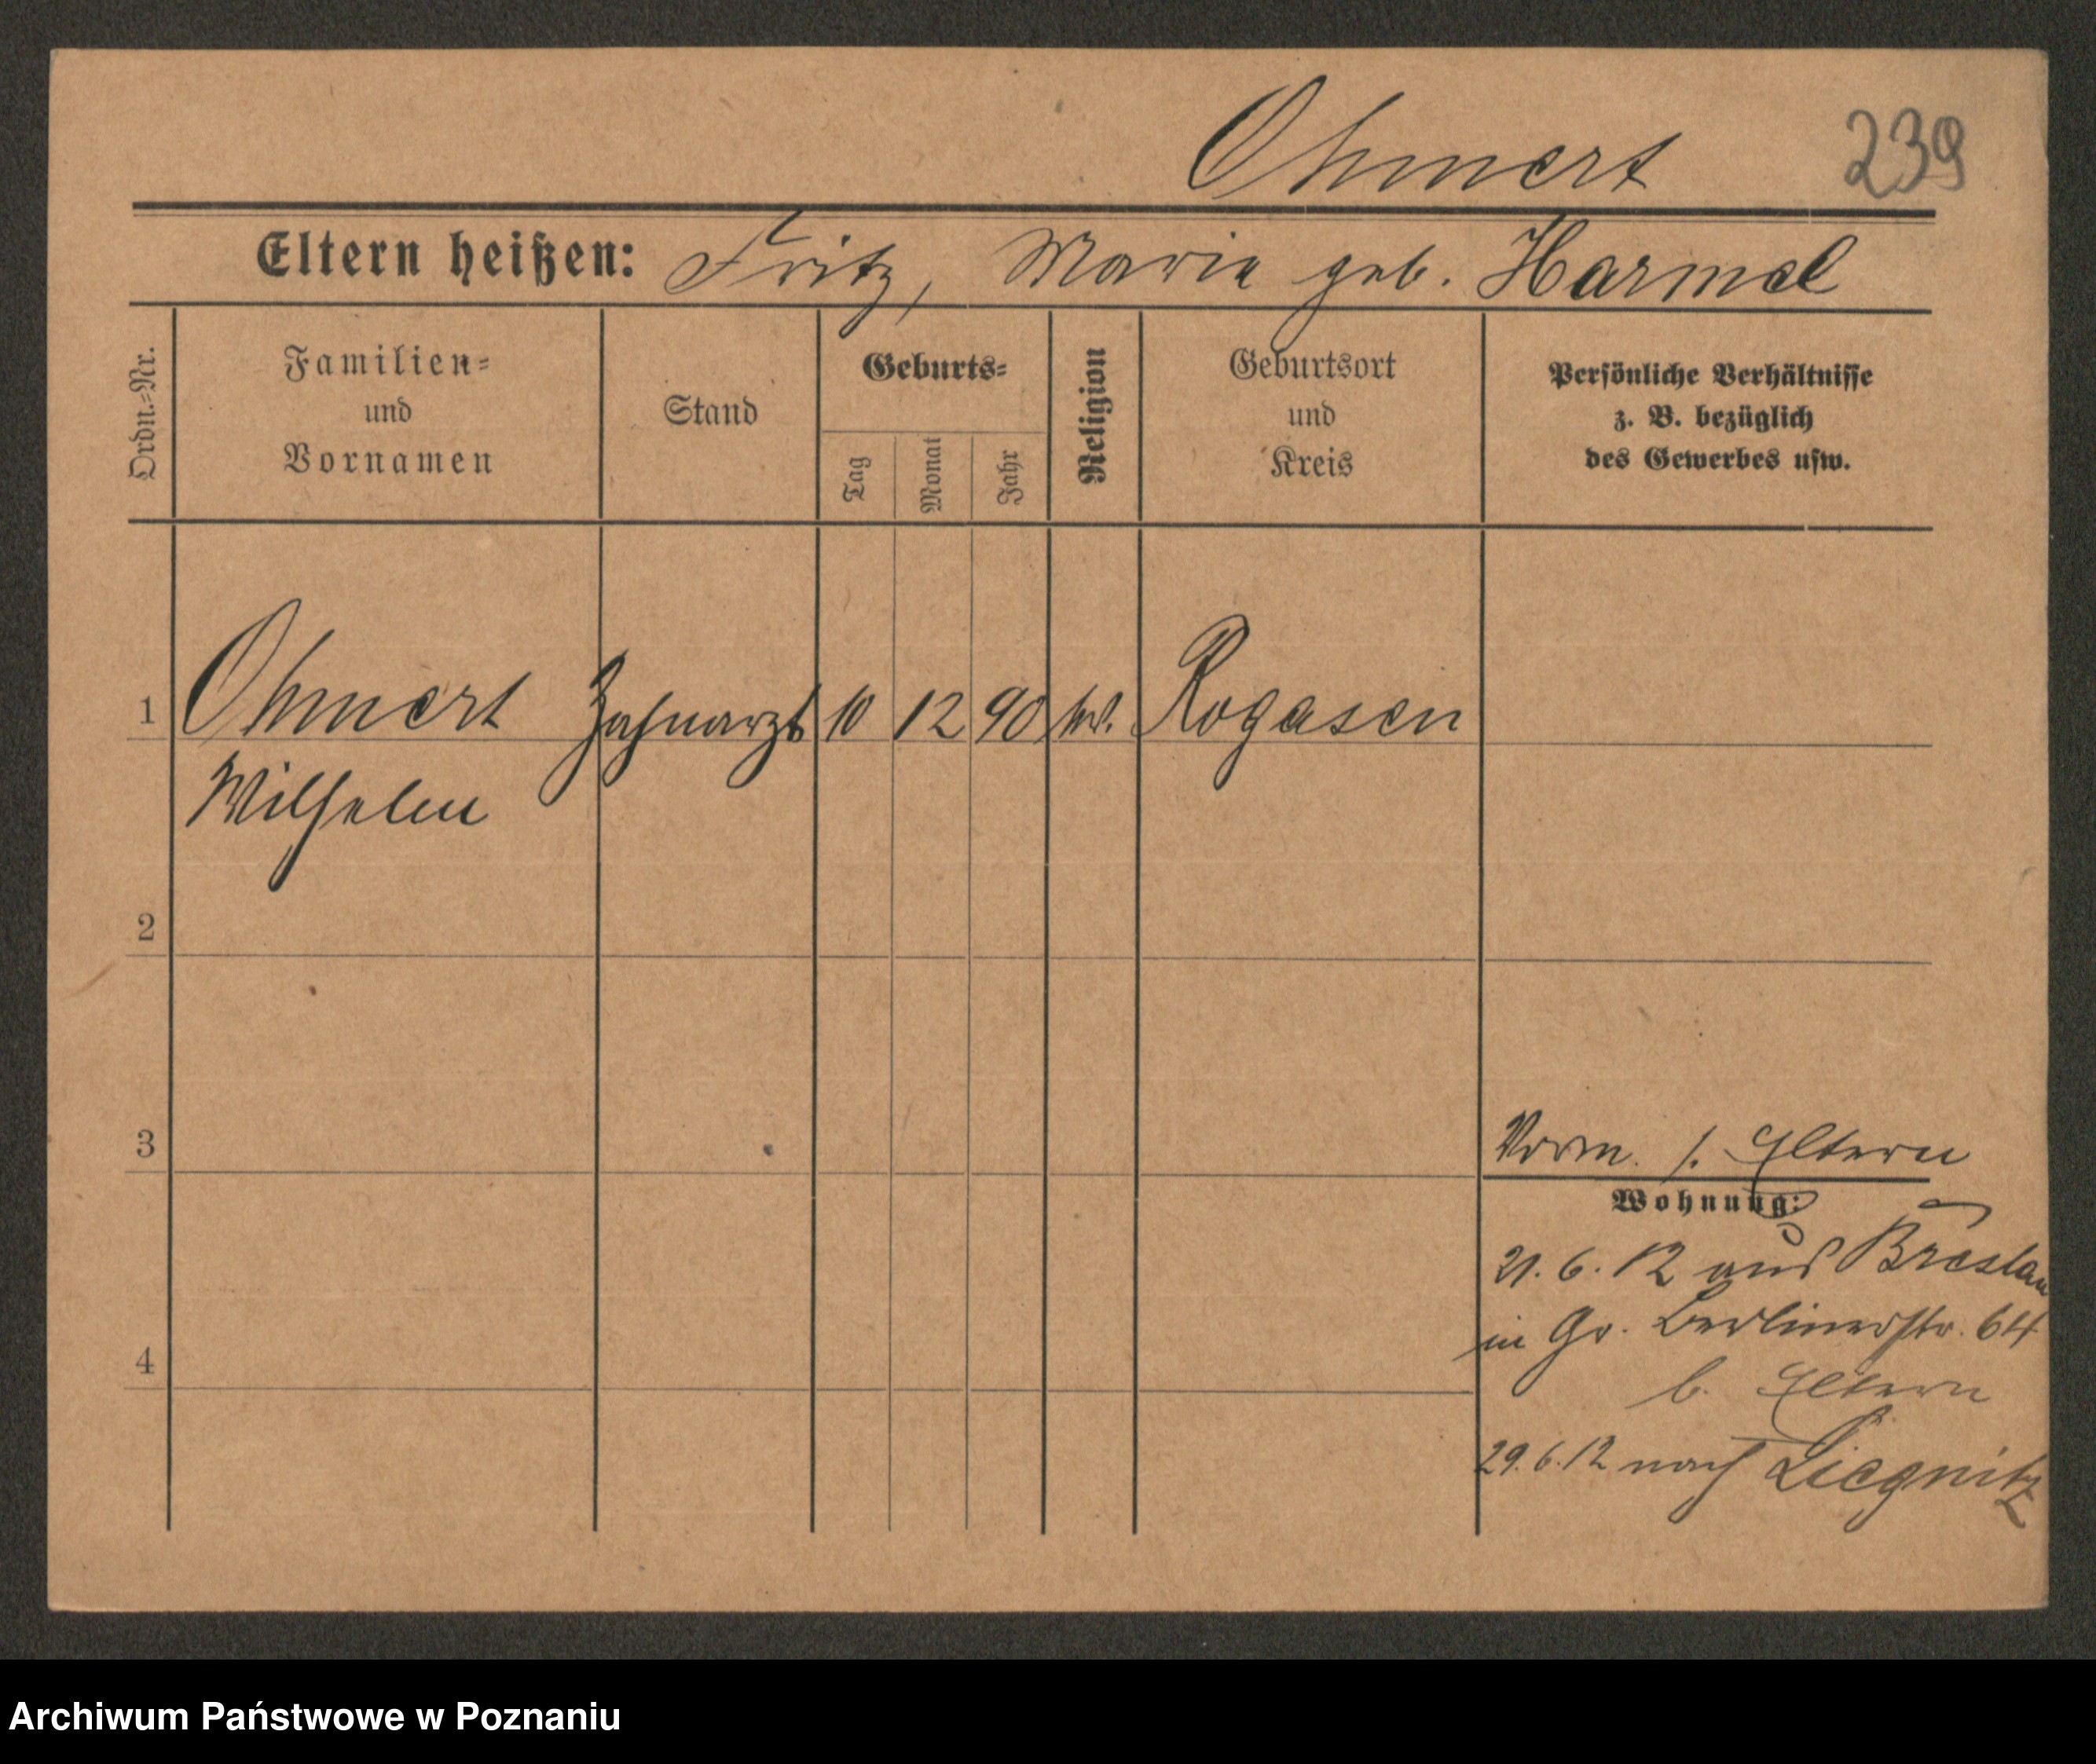 Ohmert
239
Eltern heißen: Fritz, Marie geb. Harmel
Ordn.-Nr.
Familien-
und
Vornamen
Stand
Geburts-
Tag
Monat
Jahr
Religion
Geburtsort
und
Kreis
Persönliche Verhältnisse
z. B. bezüglich
des Gewerbes usw.
1 Ohmert Zahnarzt 10 12 90 Rogasen
Wilhelm
2
3
Vorm. s. Eltern
Wohnung:
21. 6. 12 aus Breslau
in Gr. Berlinerstr. 64
4
b. Eltern
29. 6. 12 nach Liegnitz
Archiwum Państwowe w Poznaniu